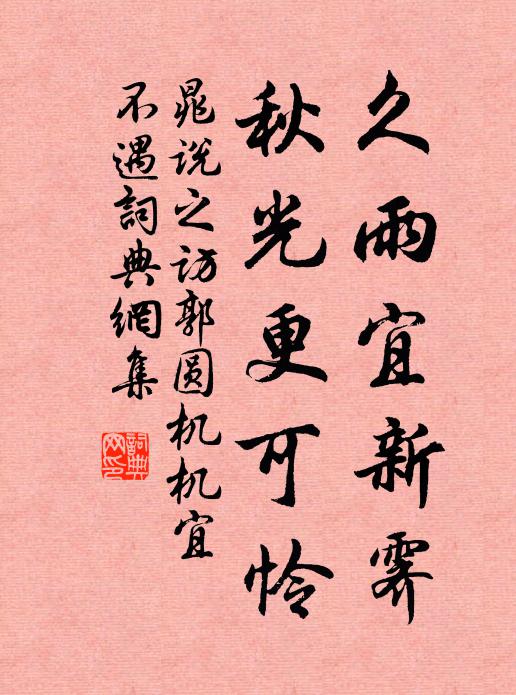 久雨宜新霽
秋光更可怜
晁説之访郭圆机机宜
不遇詞典網集
詞典网印